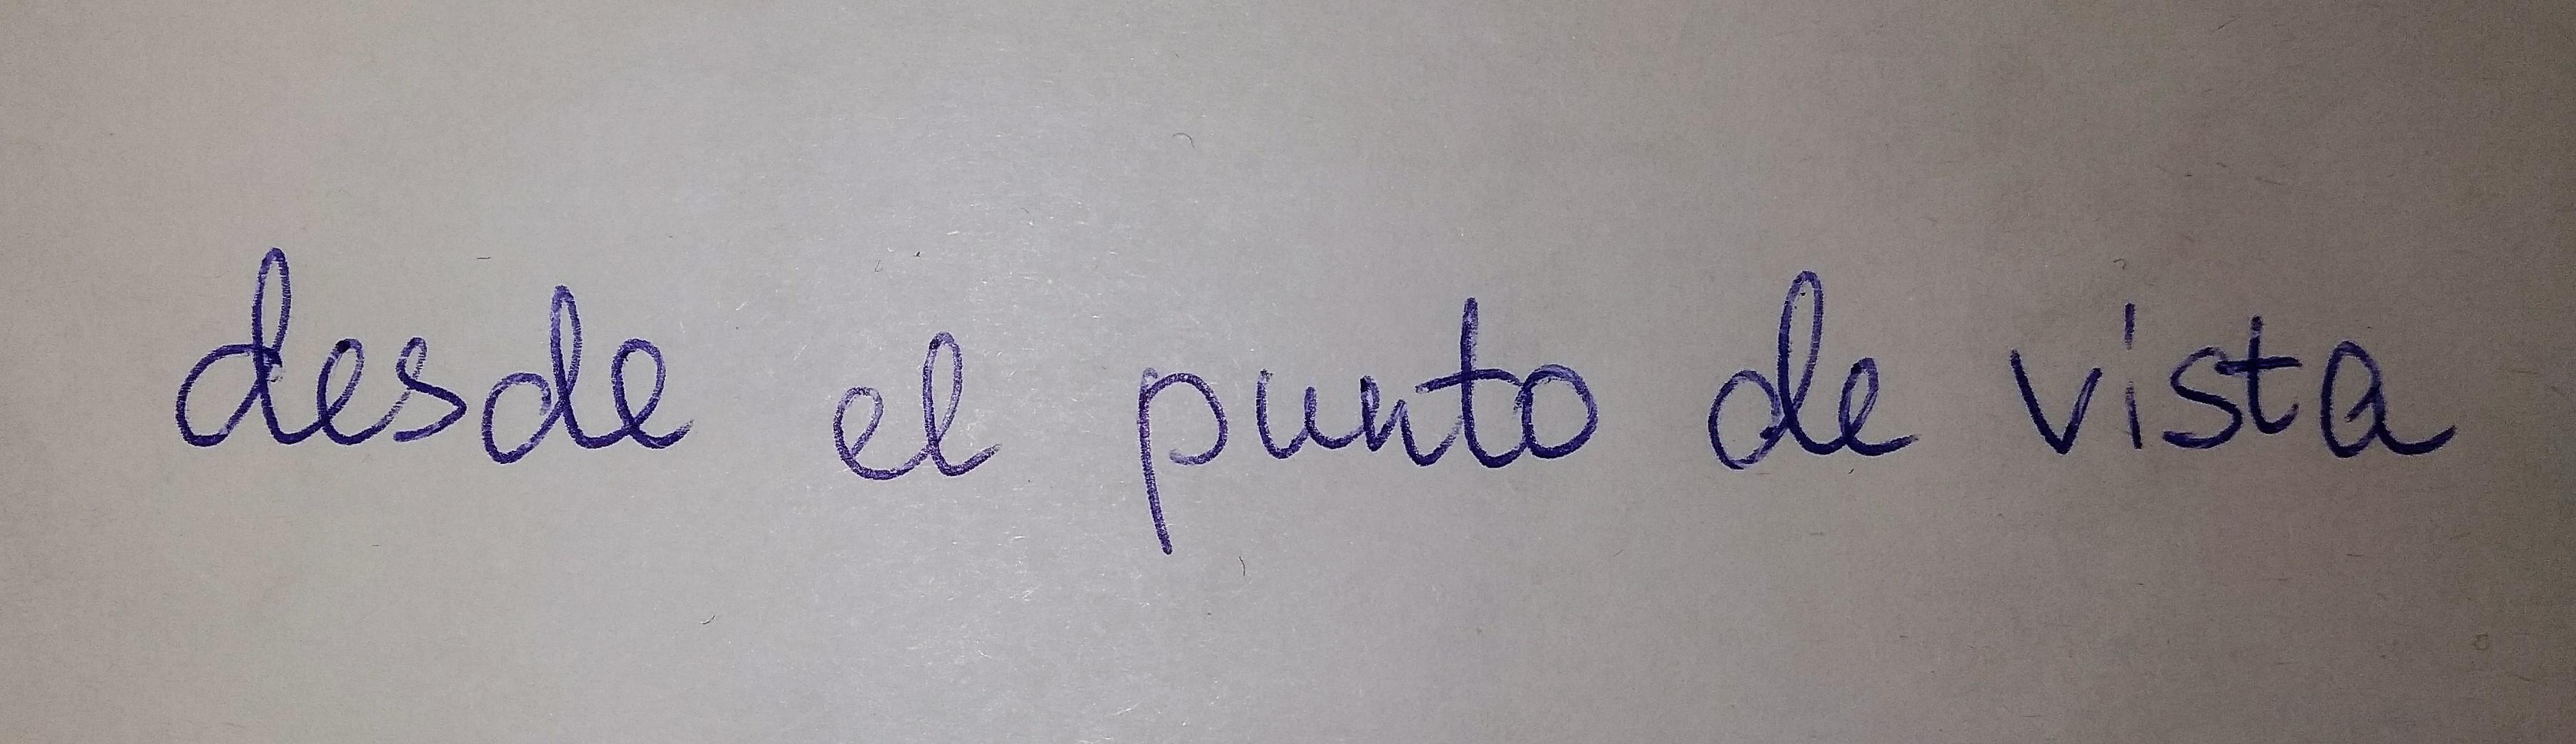 desde el punto de vista